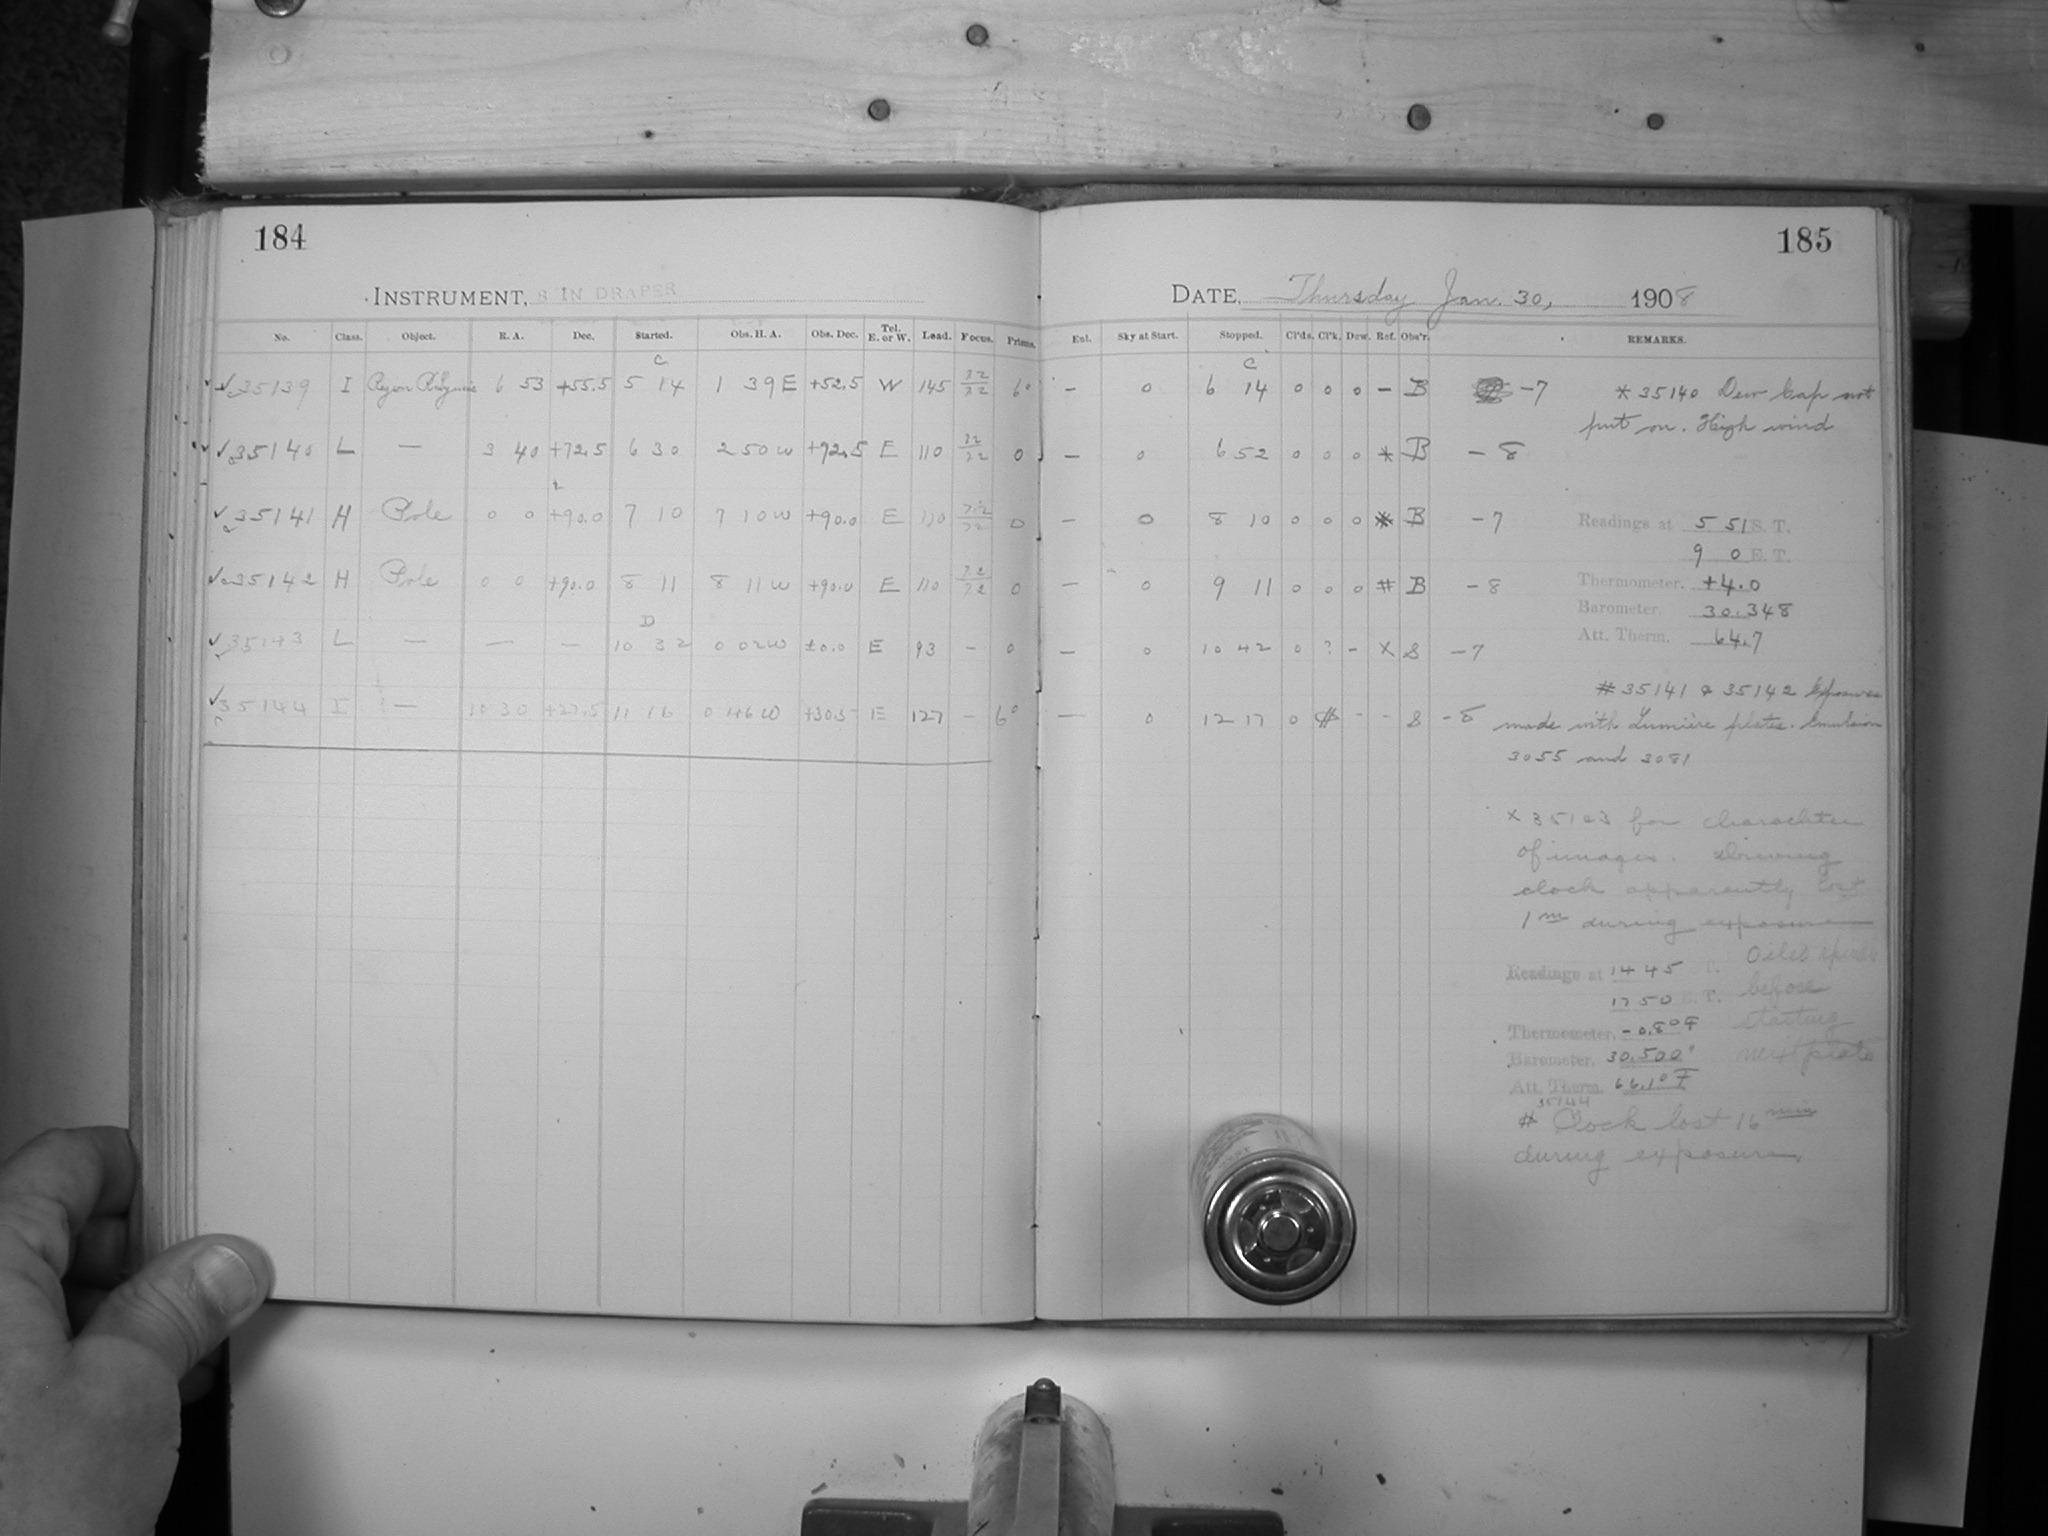 184
185
INSTRUMENT, 8 IN DRAPER
DATE, Thursday Jan. 30, 1908
No. Class. Object. R. A. Dec. Started. Obs. H. A. Obs. Dec. Tel. E. or W. Lead. Focus. Prisms. Ent. Sky at Start. Stopped. Cl'ds. Cl'k. Dew. Ref. Obs'r. REMARKS.
C C
√ 35139 I 6 53 +55.5 5 14 1 39 E +52.5 W 145 6° – 0 6 14 0 0 0 – B –7
√ 35140 L — 3 40 +72.5 6 30 2 50 W +72.5 E 110 0 – 0 6 52 0 0 0 * B –8
√ 35141 H Pole 0 0 +90.0 7 10 7 10 W +90.0 E 110 0 – 0 8 10 0 0 0 * B –7
√ 35142 H Pole 0 0 +90.0 8 11 8 11 W +90.0 E 110 0 – 0 9 11 0 0 0 # B –8
D
√ 35143 L — — — 10 32 0 02 W ±0.0 E 93 – 0 – 0 10 42 0 ? – X S –7
√ 35144 I — 10 30 +27.5 11 16 0 46 W +30.5 E 127 – 6° — 0 12 17 0 # - - S –8
* 35140 Dew Cap not
put on. High wind
Readings at 5 51 S. T.
9 0 E. T.
Thermometer. +4.0
Barometer. 30.348
Att. Therm. 64.7
# 35141 & 35142 Exposures
made with Lumière plates. Emulsion
3055 and 3081
x 35143 for charachter
of images. driving
clock apparently lost
1 m during exposure
Oiled
before
starting
next plate
Readings at 14 45
17 50 E. T.
Thermometer. –0.8° F
Barometer. 30.500"
Att. Therm. 66.1° F
35144
# Clock lost 16 min
during exposure.